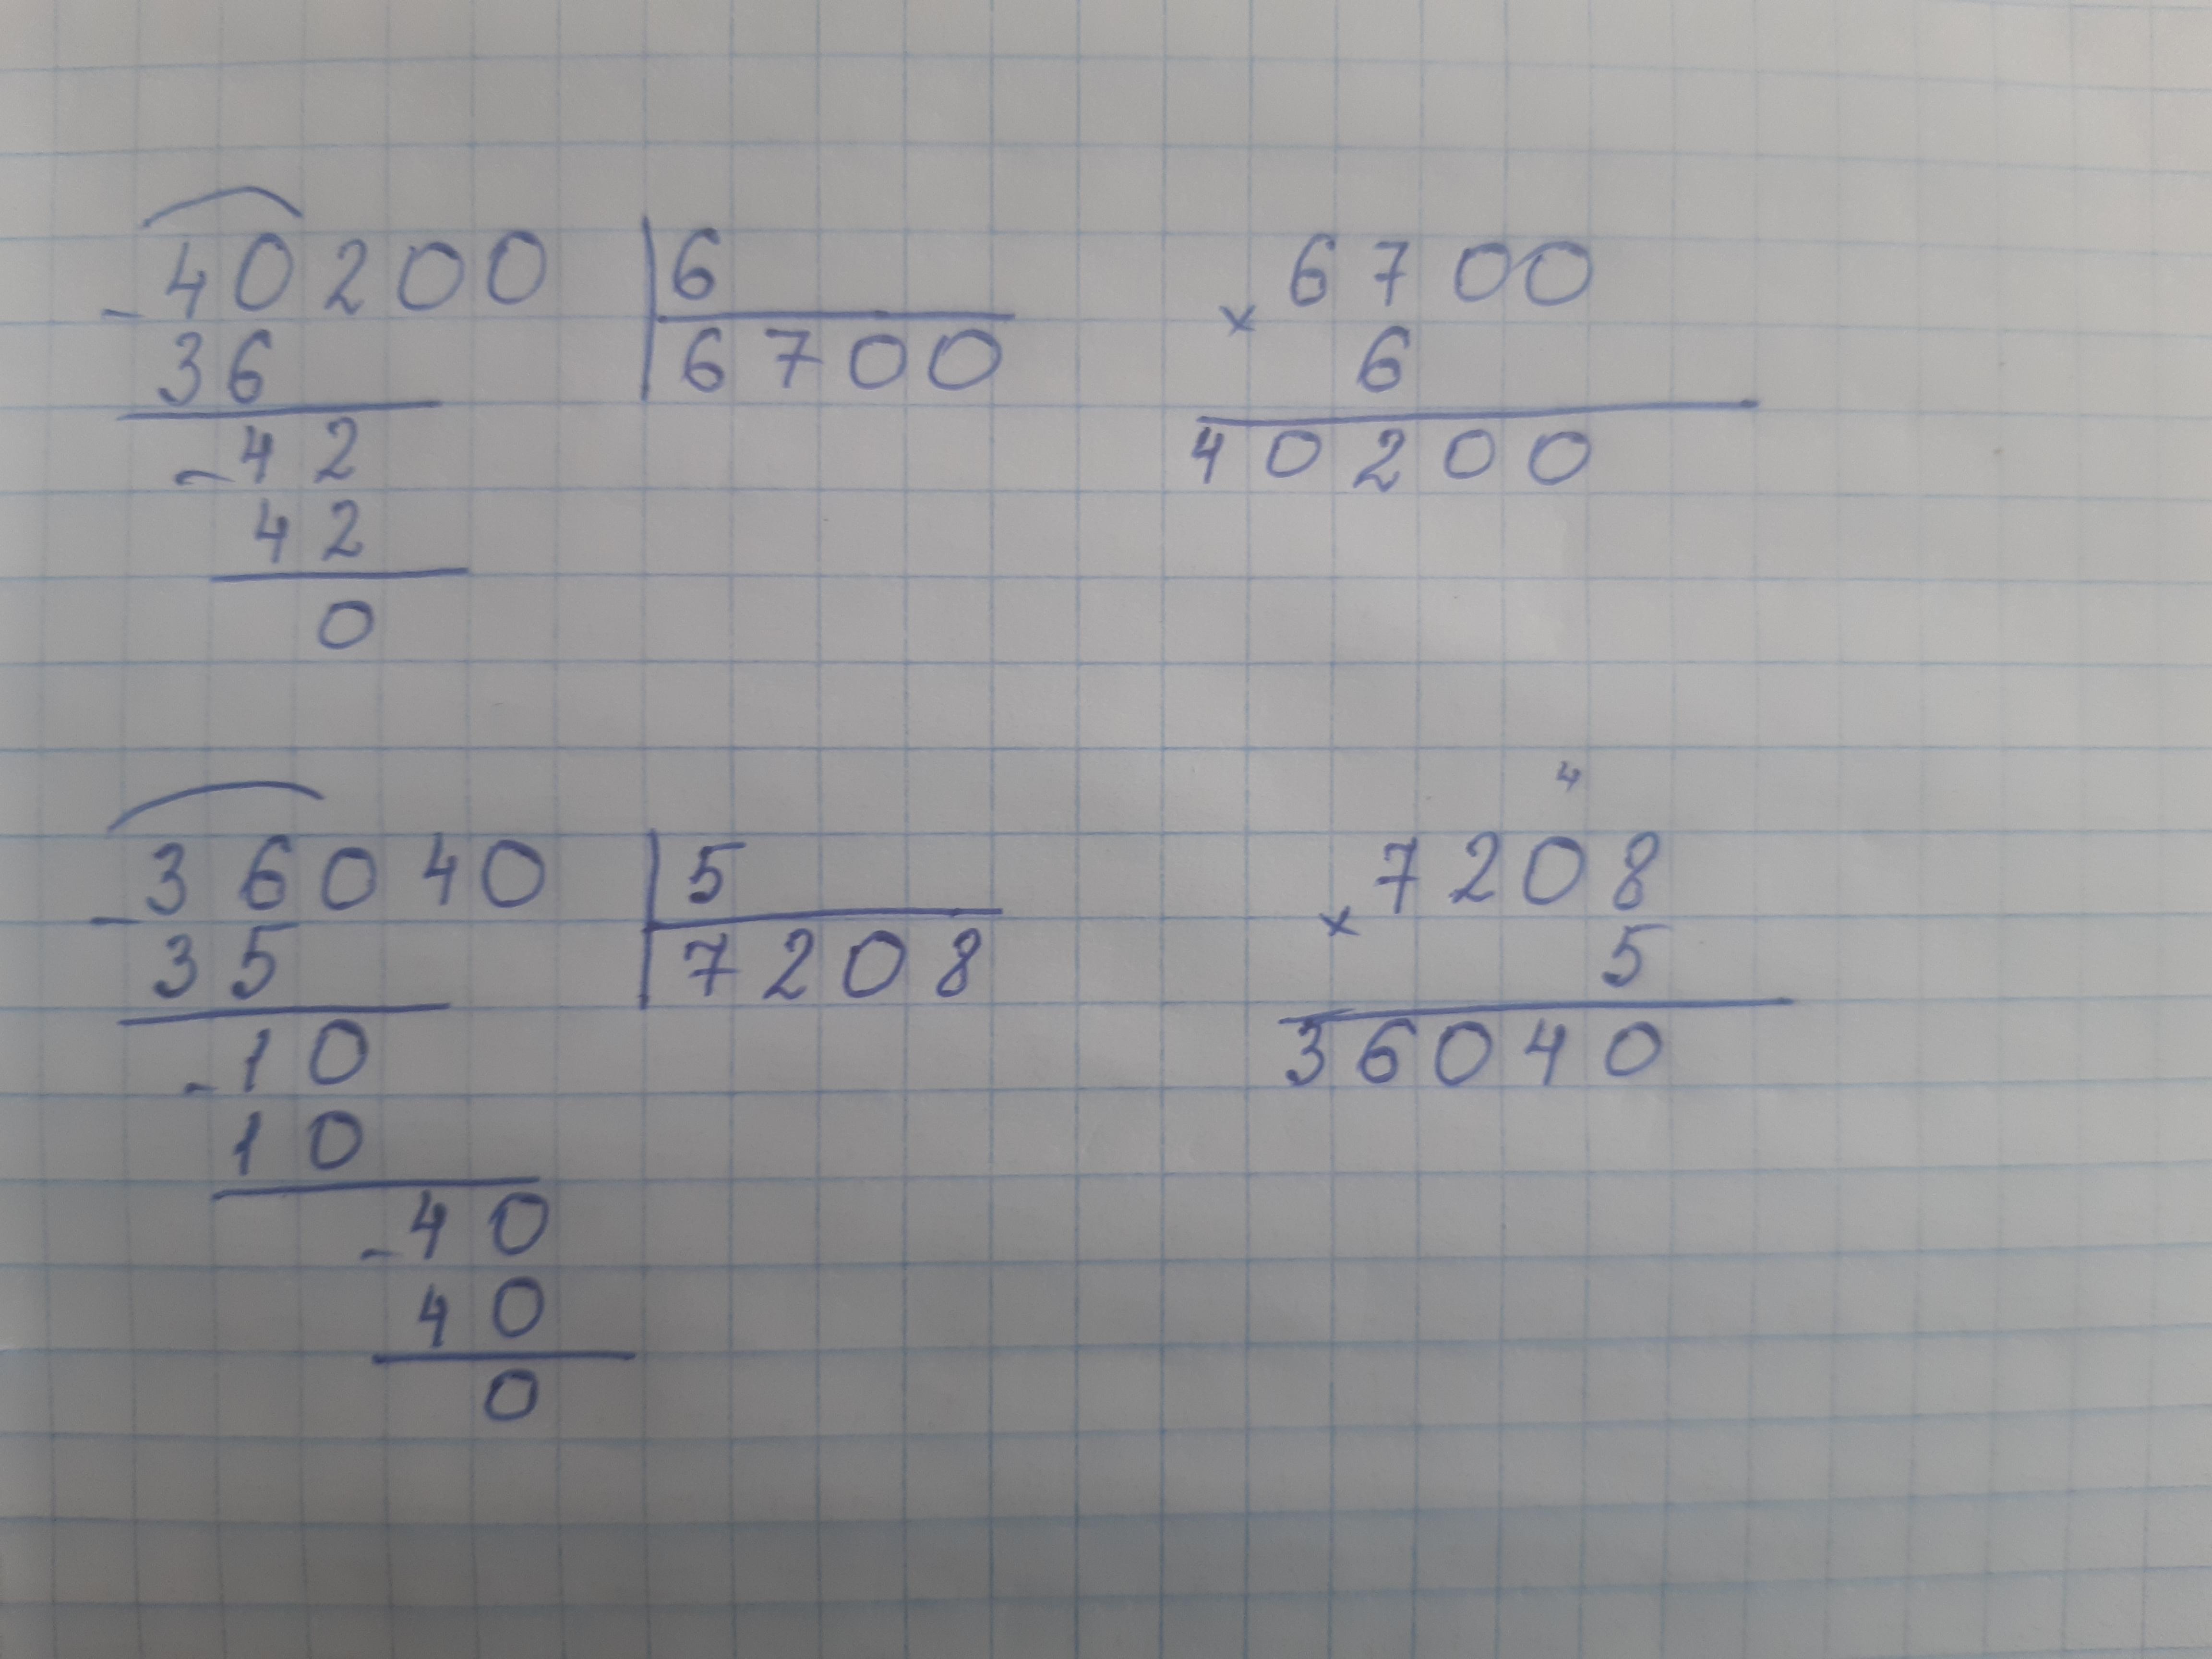 - 40200 | 6
36 | 6700
- 42
42
0
6700
× 6
40200
- 36040 | 5
35 | 7208
- 10
10
- 40
40
0
4
7208
× 5
36040